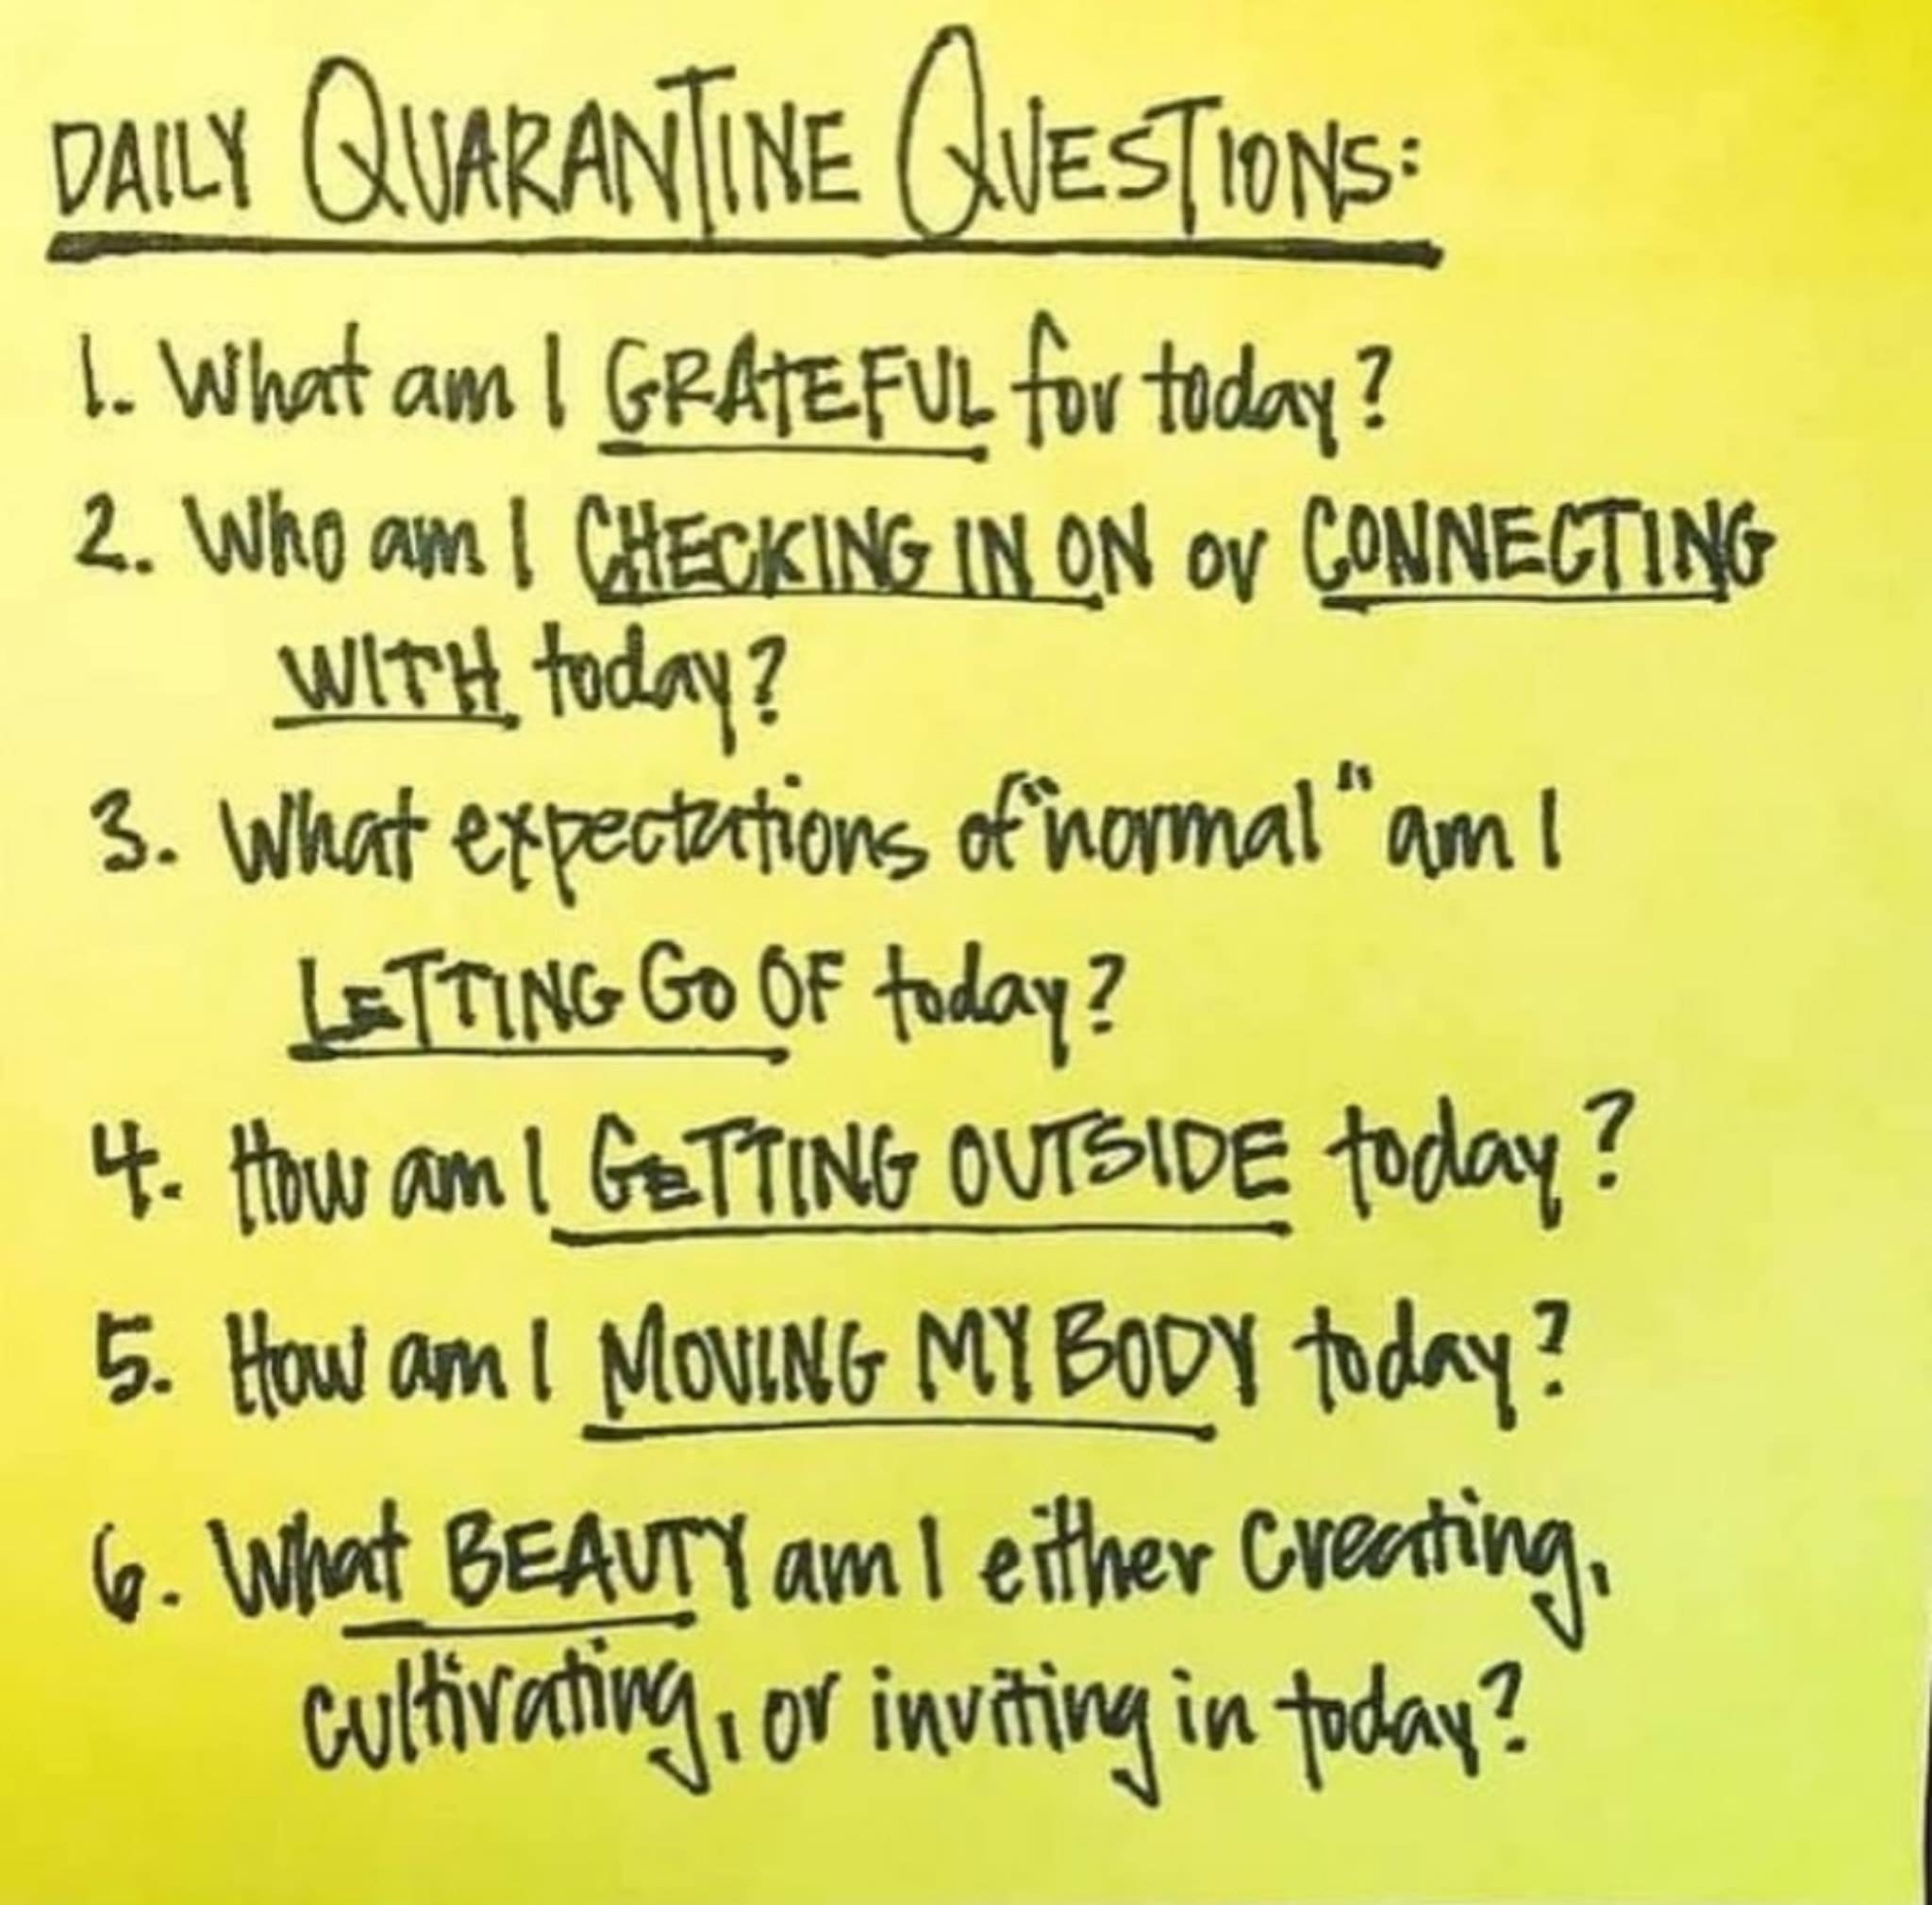 DAILY QUARANTINE QUESTIONS:
1. What am I GRATEFUL for today?
2. Who am I CHECKING IN ON or CONNECTING
WITH today?
3. What expectations of "normal" am I
LETTING GO OF today?
4. How am I GETTING OUTSIDE today?
5. How am I MOVING MY BODY today?
6. What BEAUTY am I either creating,
cultivating, or inviting in today?